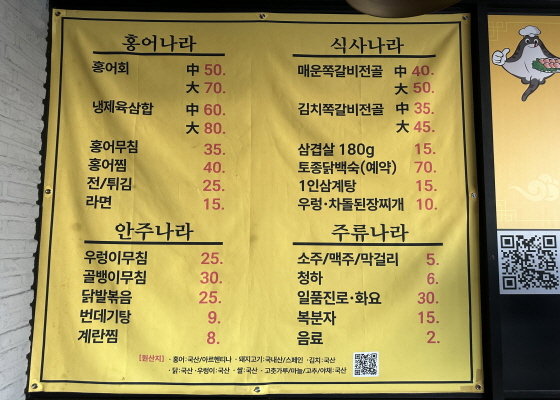 홍어나라
홍어회 中 50.
大 70.
냉제육삼합 中 60.
大 80.
홍어무침 35.
홍어찜 40.
전/튀김 25.
라면 15.
식사나라
매운쪽갈비전골 中 40.
大 50.
김치쪽갈비전골 中 35.
大 45.
삼겹살 180g 15.
토종닭백숙(예약) 70.
1인삼계탕 15.
우렁·차돌된장찌개 10.
안주나라
우렁이무침 25.
골뱅이무침 30.
닭발볶음 25.
번데기탕 9.
계란찜 8.
주류나라
소주/맥주/막걸리 5.
청하 6.
일품진로·화요 30.
복분자 15.
음료 2.
[원산지] ·홍어:국산/아르헨티나 ·돼지고기:국내산/스페인 ·김치:국산
·닭:국산 ·우렁이:국산 ·쌀:국산 ·고춧가루/마늘/고추/야채:국산